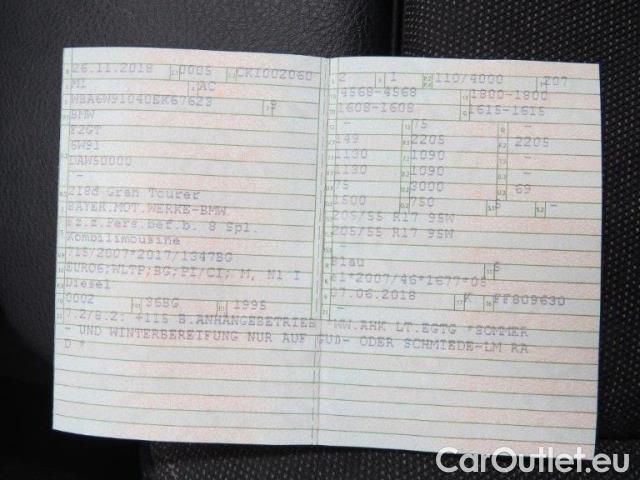 26.11.2018 0005 CKI002060
M1 AC
WBA6W91040EK67623 9
BMW
F2GT
6W91
DAW50000
-
218d Gran Tourer
BAYER.MOT.WERKE-BMW
Fz.z.Pers.bef.b. 8 Spl.
Kombilimousine
715/2007*2017/1347BG
EURO6;WLTP;BG;PI/CI; M, N1 I
Diesel
0002 36BG 1995
2 1 110/4000 207
4568-4568 1800-1800
1608-1608 1615-1615
- 75 -
149 2205 2205
1130 1090 -
1130 1090 -
75 3000 69
1500 750 5 -
205/55 R17 95W
205/55 R17 95W
-
blau 5
e1*2007/46*1677*05
07.06.2018 K FF809630
7.2/8.2: +115 B.ANHÄNGEBETRIEB *WW.AHK LT.EGTG *SOMMER
- UND WINTERBEREIFUNG NUR AUF GUß- ODER SCHMIEDE-LM RA
D *
CarOutlet.eu